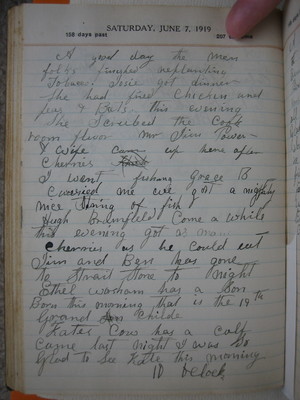 SATURDAY, JUNE 7, 1919
158 days past 207
A good day the men
folks finished replanting
Tobacco Josie got dinner
She had fried Chicken and
this evening
She Scrubed the Cook
room floor Mr Jim
& Wife came up here after
Cherries
I went fishing Grace B
Carried me we got a mighty
nice String of fish
Hugh Come a while
this evening got as
Cherries as he could eat
Jim and Ben has gone
to Store to Night
Ethel has a Son
Born this morning that is the 19th
Grand Childe
Kates Cow has a calf
Came last night I was So
Glad to See Kate this morning
10 O Clock